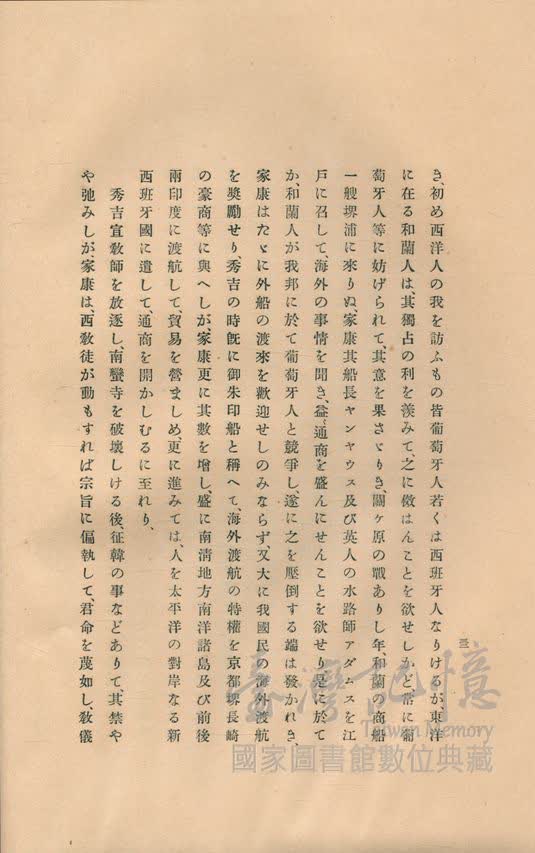 き、初め西洋人の我を訪ふもの皆葡萄牙人若くは西班牙人なりけるが、東洋
に在る和蘭人は、其獨占の利を羨みて、之に傚はんことを欲せしかど、常に葡
萄牙人等に妨げられて、其意を果さゞりき、關ヶ原の戰ありし年、和蘭の商船
一艘堺浦に來りぬ、家康其船長ヤンヤウス及び英人の水路師アダムスを江
戸に召して、海外の事情を聞き、益〻通商を盛んにせんことを欲せり是に於て
か、和蘭人が我邦に於て葡萄牙人と競爭し、遂に之を壓倒する端は發かれき、
家康はたゞに外船の渡來を歡迎せしのみならず、又大に我國民の海外渡航
を奬勵せり、秀吉の時既に御朱印船と稱へて、海外渡航の特權を京都堺長崎
の豪商等に與へしが、家康更に其數を增し、盛に南清地方南洋諸島及び前後
兩印度に渡航して、貿易を營ましめ、更に進みては、人を太平洋の對岸なる新
西班牙國に遣して、通商を開かしむるに至れり、
秀吉宣敎師を放逐し、南蠻寺を破壞しける後征韓の事などありて、其禁や
や弛みしが、家康は、西敎徒が動もすれば宗旨に偏執して、君命を蔑如し、敎儀
臺灣記憶
Taiwan Memory
國家圖書館數位典藏